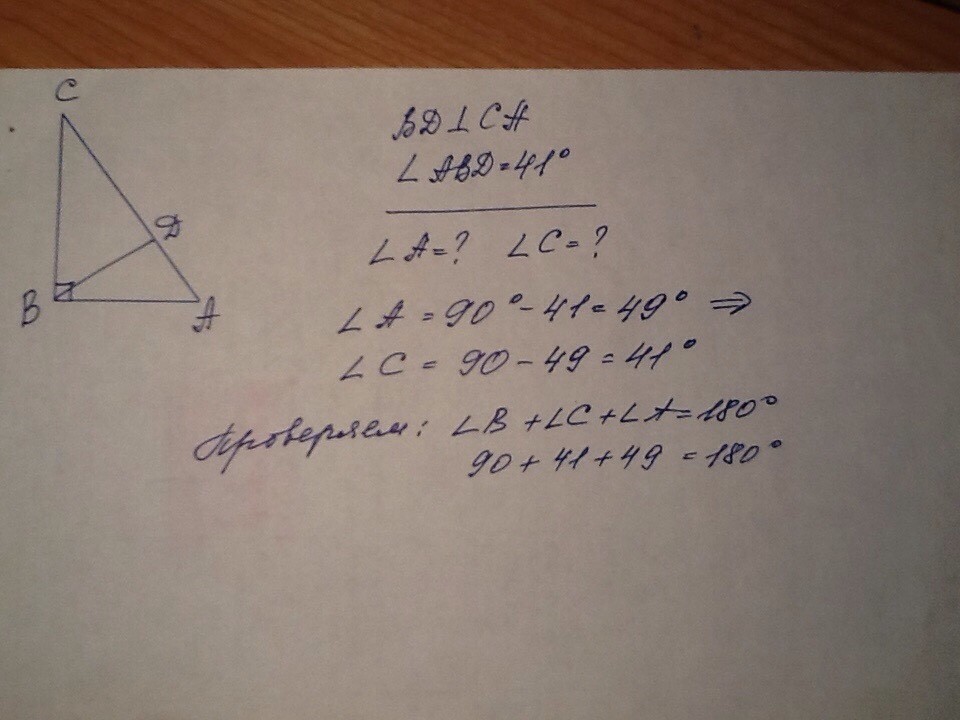 C
D
B
A
BD⊥CA
∠ABD=41°
∠A=? ∠C=?
∠A=90°-41=49° ⇒
∠C=90-49=41°
Проверяем: ∠B+∠C+∠A=180°
90+41+49=180°